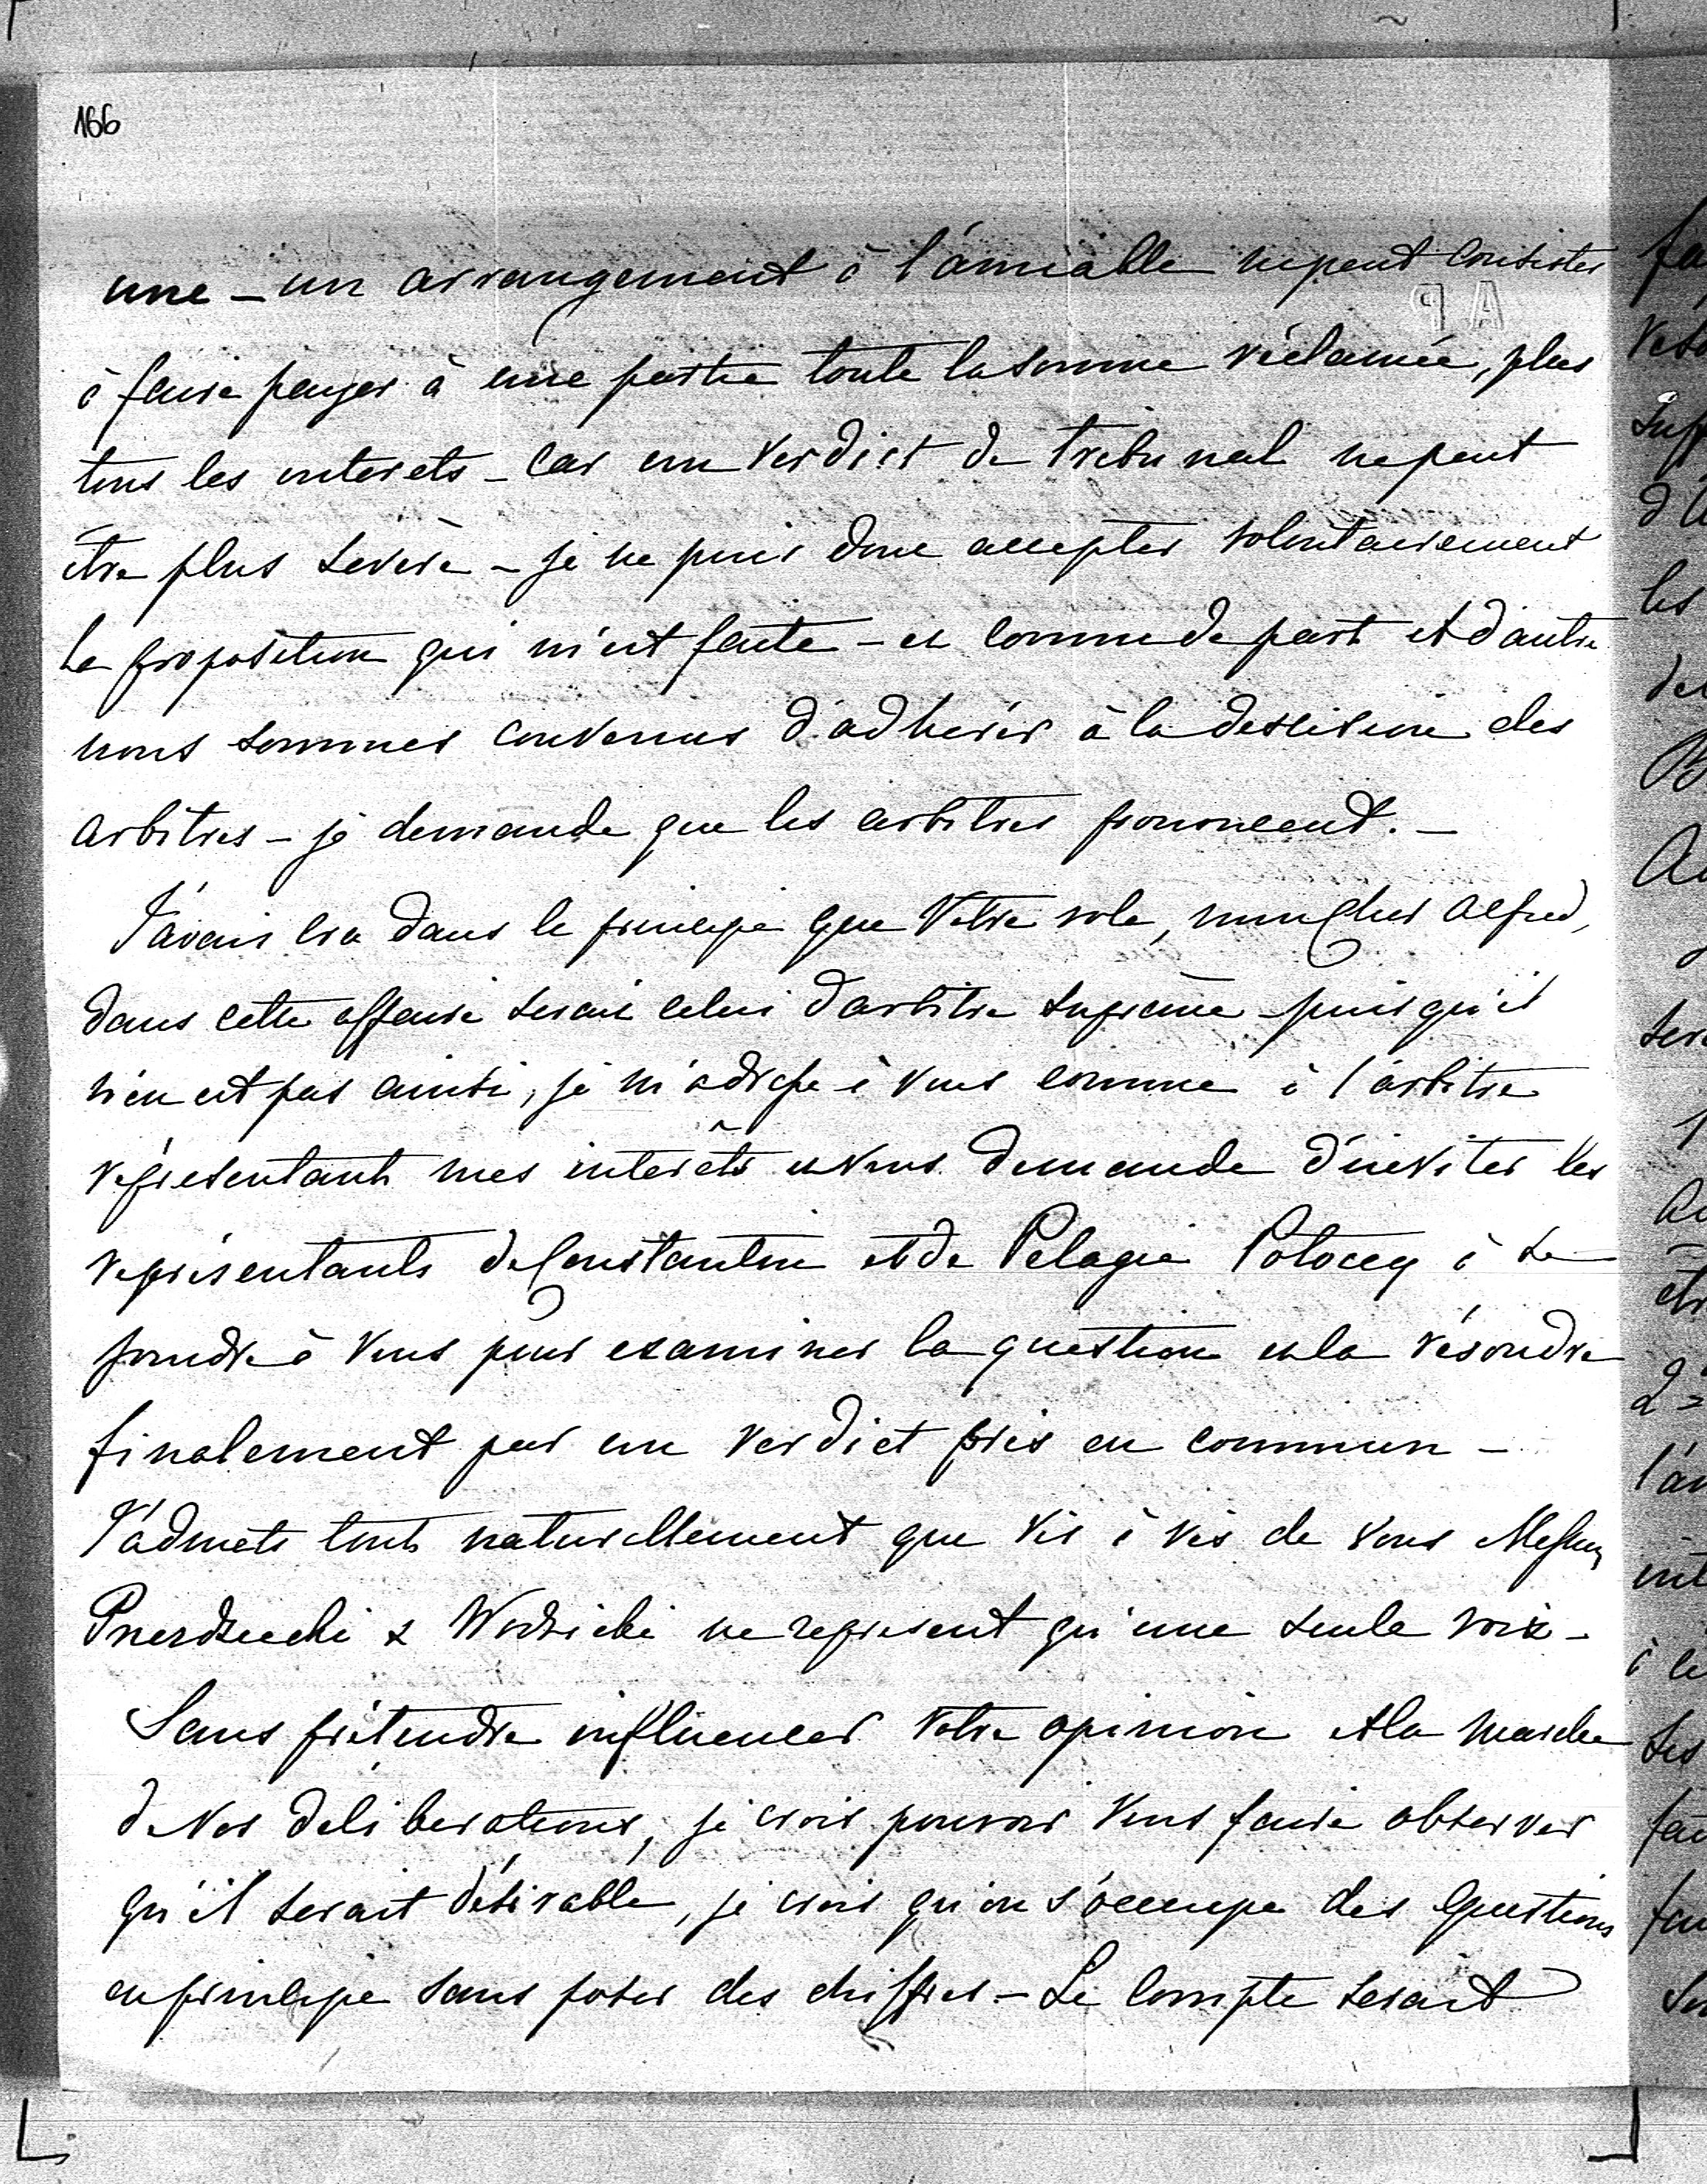 166
une – un arrangement à l'amiable ne peut consister
à faire payer à une partie toute la somme réclamée, plus
tous les interets – car un verdict de tribunal ne peut
être plus severe – je ne puis donc accepter volontairement
la proposition qui m'est faite – et comme de part et d'autre
nous sommes convenus d'adherér à la descision des
arbitres – je demande que les arbitres prononcent. –
J'avais cru dans le principe que Votre role, mon cher Alfred,
dans cette affaire serait celui d'arbitre suprême – puis qu'il
n'en est pas ainsi, je m'adresse à vous comme à l'arbitre
représentant mes interêts et vous demande d'inviter les
représentants de Constantin et de Pelagie Potocey à se
joindre à Vous pour examiner la question et la résoudre
finalement par un verdict pris en commun –
J'admets tout naturellement que vis à vis de vous Messieurs
& Wodzicki ne represent qu'une seule voix –
Sans prétendre influencer votre opinion et la marche
de Vos deliberations, je crois pouvoir Vous faire observer
qu'il serait désirable, je crois qu'on s'occupe des Questions
en principe sans poser des chiffres – Le Compte serait